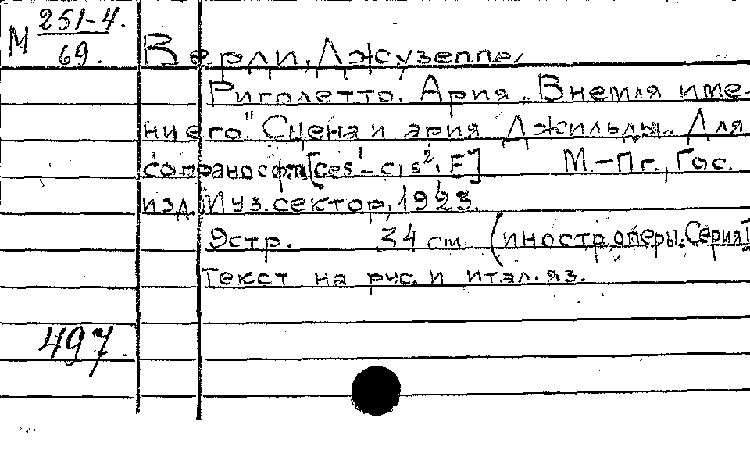 М 251-4.
69.
Верди, Джузеппе,
Риголетто. Ария „Внемля име-
ни его" Сцена и ария Джильды. Для
сопрано с фп [ces¹-cis², E] М.-Пг., Гос.
изд. Муз. сектор, 1923.
9стр. 34 см. (иностр. оперы. Серия I
Текст на рус. и итал. яз.
497